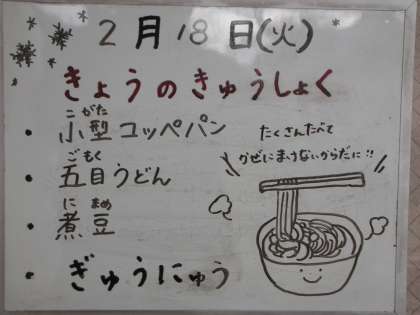 2月18日(火)
きょうのきゅうしょく
こがた
・小型コッペパン
ごもく
・五目うどん
にまめ
・煮豆
・ぎゅうにゅう
たくさんたべて
かぜにまけないからだに!!